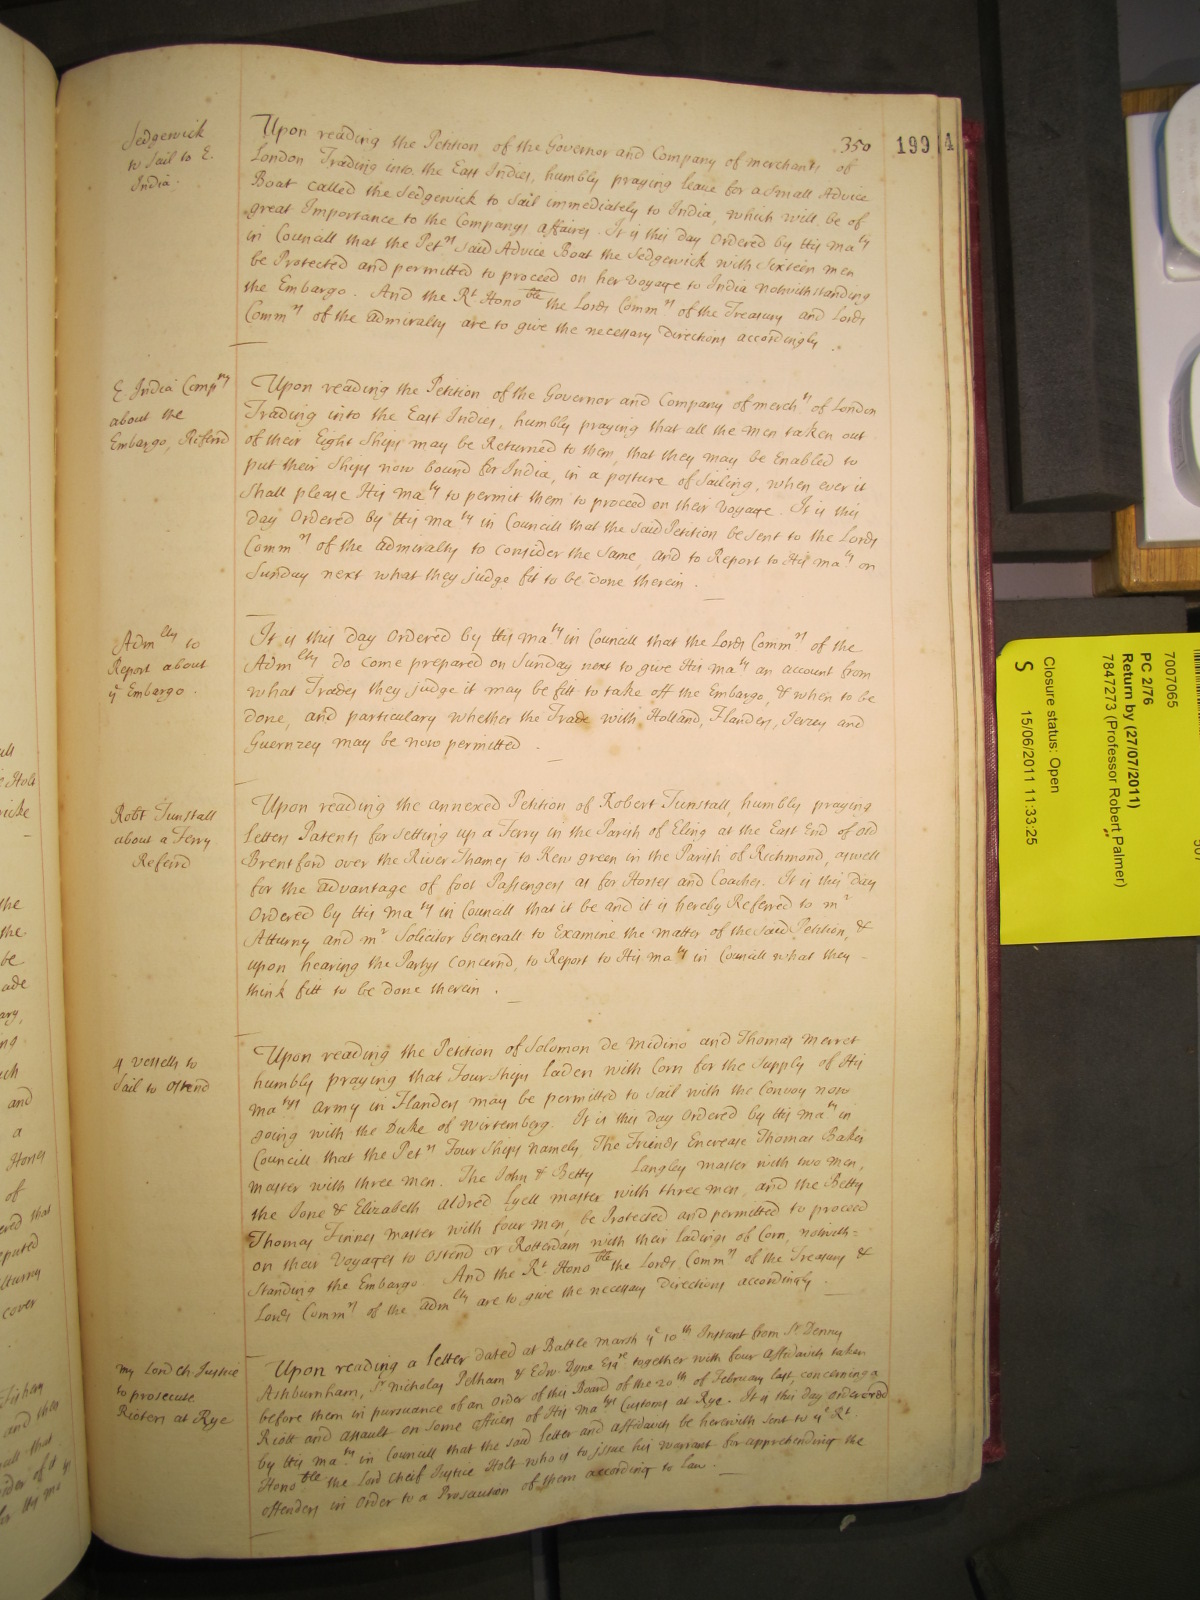 350
199
4
Sedgewick
to Sail to E.
India.
Upon reading the Petition of the Governor and Company of merchants of
London Trading into the East Indies, humbly praying leave for a Small Advice
Boat called the Sedgewick to Sail immediately to India, which will be of
great Importance to the Companys affaires. It is this day Ordered by His Ma^ty
in Councill that the Pet^rs said Advice Boat the Sedgewick with Sixteen men
be Protected and permitted to proceed on her Voyage to India notwithstanding
the Embargo. And the R^t Hono^ble the Lords Comm^rs of the Treasury and Lords
Comm^rs of the Admiralty are to give the necessary Directions accordingly.
E. India Comp^ny
about the
Embargo, Referrd
Upon reading the Petition of the Governor and Company of merch^ts of London
Trading into the East Indies, humbly praying that all the men taken out
of their Eight Ships may be Returned to them, that they may be Enabled to
put their Ships now bound for India, in a posture of Sailing, when ever it
Shall please His Ma^ty to permit them to proceed on their Voyage. It is this
day Ordered by His Ma^ty in Councill that the said Petition be sent to the Lords
Comm^rs of the Admiralty to consider the same, and to Report to His Ma^ty on
Sunday next what they judge fit to be done therein.
Adm^lty to
Report about
y^e Embargo.
It is this day Ordered by His Ma^ty in Councill that the Lords Comm^rs of the
Adm^lty do come prepared on Sunday next to give His Ma^ty an account from
what Trades they judge it may be fitt to take off the Embargo, & when to be
done, and particulary whether the Trade with Holland, Flanders, Jerzey and
Guernzey may be now permitted.
Robt Tunstall
about a Ferry
Referrd
Upon reading the annexed Petition of Robert Tunstall, humbly praying
letters Patents for setting up a Ferry in the Parish of Eling at the East End of old
Brentford over the River Thames to Kew green in the Parish of Richmond, aswell
for the advantage of foot Passengers as for Horses and Coaches. It is this day
Ordered by His Ma^ty in Councill that it be and it is hereby Referred to m^r
Atturny and m^r Solicitor Generall to Examine the matter of the said Petition, &
upon hearing the Partys concernd, to Report to His Ma^ty in Councill what they
think fitt to be done therein.
4 Vessells to
Sail to Ostend
Upon reading the Petition of Solomon de Medino and Thomas Merret
humbly praying that Four Ships laden with Corn for the Supply of His
Ma^tys Army in Flanders may be permitted to sail with the Convoy now
going with the Duke of Wirtemberg. It is this day Ordered by His Ma^ty in
Councill that the Pet^rs Four Ships namely The Friends Encrease Thomas Baker
master with three men. The John & Betty Langley master with two men,
the Jone & Elizabeth Aldred Lyell master with three men, and the Betty
Thomas Finnes master with four men, be Protected and permitted to proceed
on their Voyages to Ostend or Rotterdam with their ladings of Corn, notwith-
standing the Embargo. And the R^t Hono^ble the Lords Comm^rs of the Treasury &
Lords Comm^rs of the Adm^lty are to give the necessary Directions accordingly.
my Lord Ch. Justice
to prosecute
Rioters at Rye
Upon reading a letter dated at Battle Marsh y^e 10^th Instant from S^r Denny
Ashburnham, S^r Nicholas Pelham & Edw: Dyne Esq^re together with four Affidavits taken
before them in pursuance of an Order of this Board of the 20^th of February last, concerning a
Riott and assault on some officers of His Ma^tys Customs at Rye. It is this day Ordered
by His Ma^ty in Councill that the said letter and affidavits be herewith sent to y^e R^t
Hono^ble the Lord Cheif Justice Holt who is to issue his warrant for apprehending the
offenders in Order to a Prosecution of them according to law.
7007065
PC 2/76
Return by (27/07/2011)
7847273 (Professor Robert Palmer)
Closure status: Open
15/06/2011 11:33:25
S